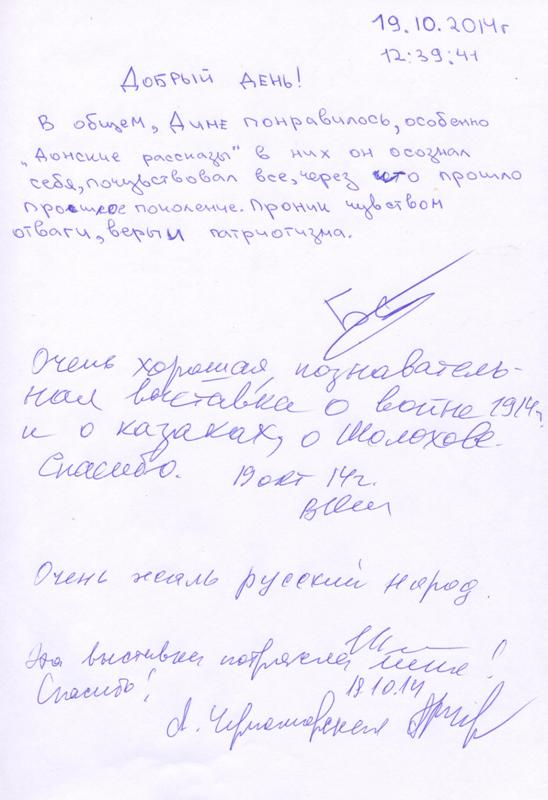 19.10.2014г
12:39:41
Добрый день!
В общем, Дине понравилось, особенно
„Донские рассказы" в них он осознал
себя, почувствовал все, через что прошло
прошлое поколение. Проник чувством
отваги, веры и патриотизма.
Очень хорошая, познаватель-
ная выставка о войне 1914г.
и о казаках, о Шолохове.
Спасибо. 19 окт 14г.
Очень жаль русский народ.
Эта выставка потрясла меня!
Спасибо! 19.10.14
А. Черноморская